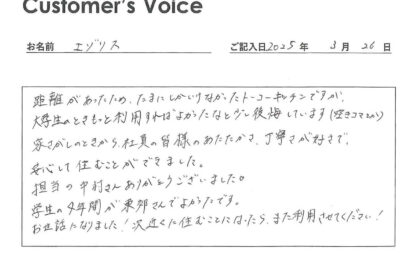 Customer's Voice
お名前 エゾリス ご記入日 2025 年 3 月 26 日
距離があったため、たまにしかいけなかったトーコーキッチンですが、
大学生のときもっと利用すればよかったなと少し後悔しています(空きコマとか)
家さがしのときから、社員の皆様のあたたかさ、丁寧さが好きで、
安心して住むことができました。
担当の中村さんありがとうございました。
学生の4年間が東郊さんでよかったです。
お世話になりました!次近くに住むことになったら、また利用させてください!